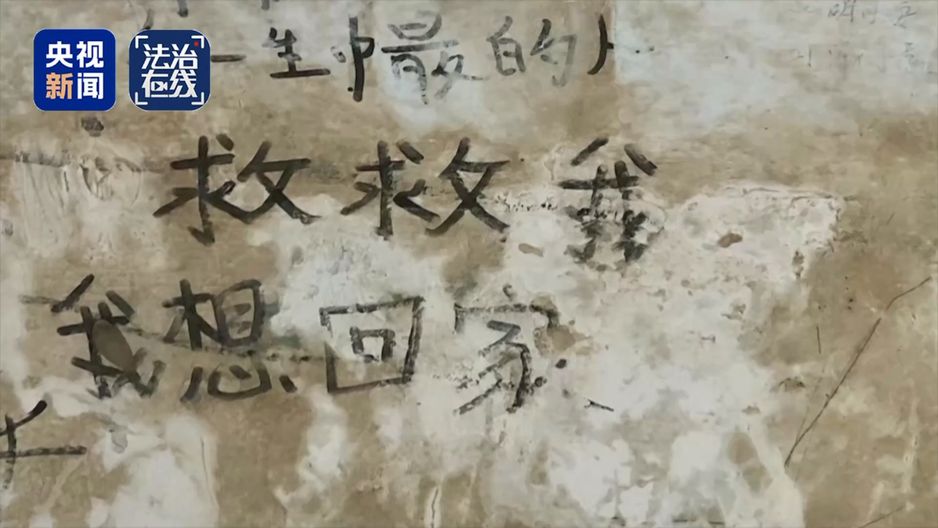 央视新闻
法治在线
生 最的
救救我
我想回家